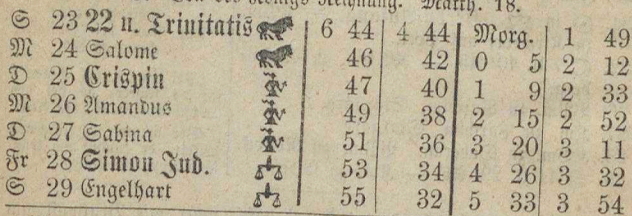 Des Königs Rechnung. Matth. 18.
S 23 22 n. Trinitatis 6 44 4 44 Morg. 1 49
M 24 Salome 46 42 0 5 2 12
D 25 Crispin 47 40 1 9 2 33
M 26 Amandus 49 38 2 15 2 52
D 27 Sabina 51 36 3 20 3 11
Fr 28 Simon Jud. 53 34 4 26 3 32
S 29 Engelhart 55 32 5 33 3 54